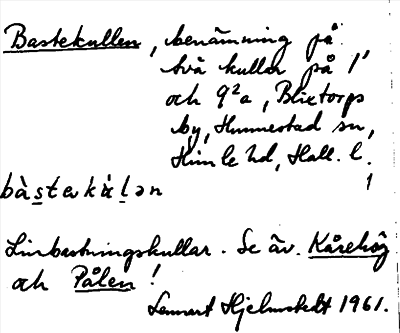 Bastekullen, benämning på
två kullar på 1¹
och 9²a, Blixtorps
by, Hunnestad sn,
Himle hd, Hall. l.
1
Linbastningskullar. Se äv. Kårehög
och Pålen!
Lennart Hjelmstedt 1961.